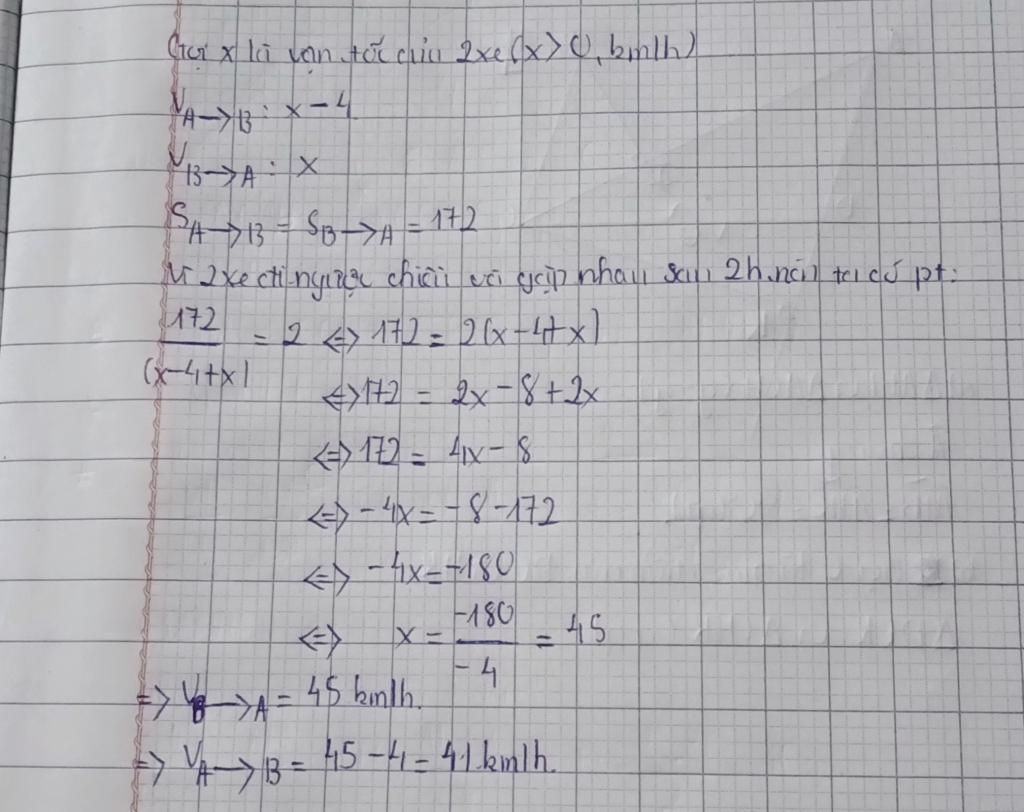 Gọi x là vận tốc của 2 xe (x > 0, km/h)
V A→B : x - 4
V B→A : x
S A→B = S B→A = 172
Vì 2 xe đi ngược chiều và gặp nhau sau 2h. nên ta có pt:
172/(x-4+x) = 2 <=> 172 = 2(x-4+x)
<=> 172 = 2x - 8 + 2x
<=> 172 = 4x - 8
<=> -4x = -8 - 172
<=> -4x = -180
<=> x = -180/-4 = 45
=> V B→A = 45 km/h.
=> V A→B = 45 - 4 = 41 km/h.